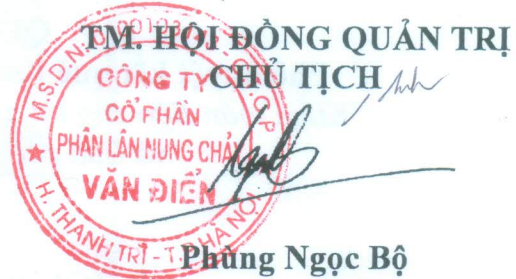 TM. HỘI ĐỒNG QUẢN TRỊ
CHỦ TỊCH
M.S.D.N:
C.T.C.P
CÔNG TY
CỔ PHẦN
PHÂN LÂN NUNG CHẢY
VĂN ĐIỂN
H. THANH TRÌ - T.P HÀ NỘI
Phùng Ngọc Bộ